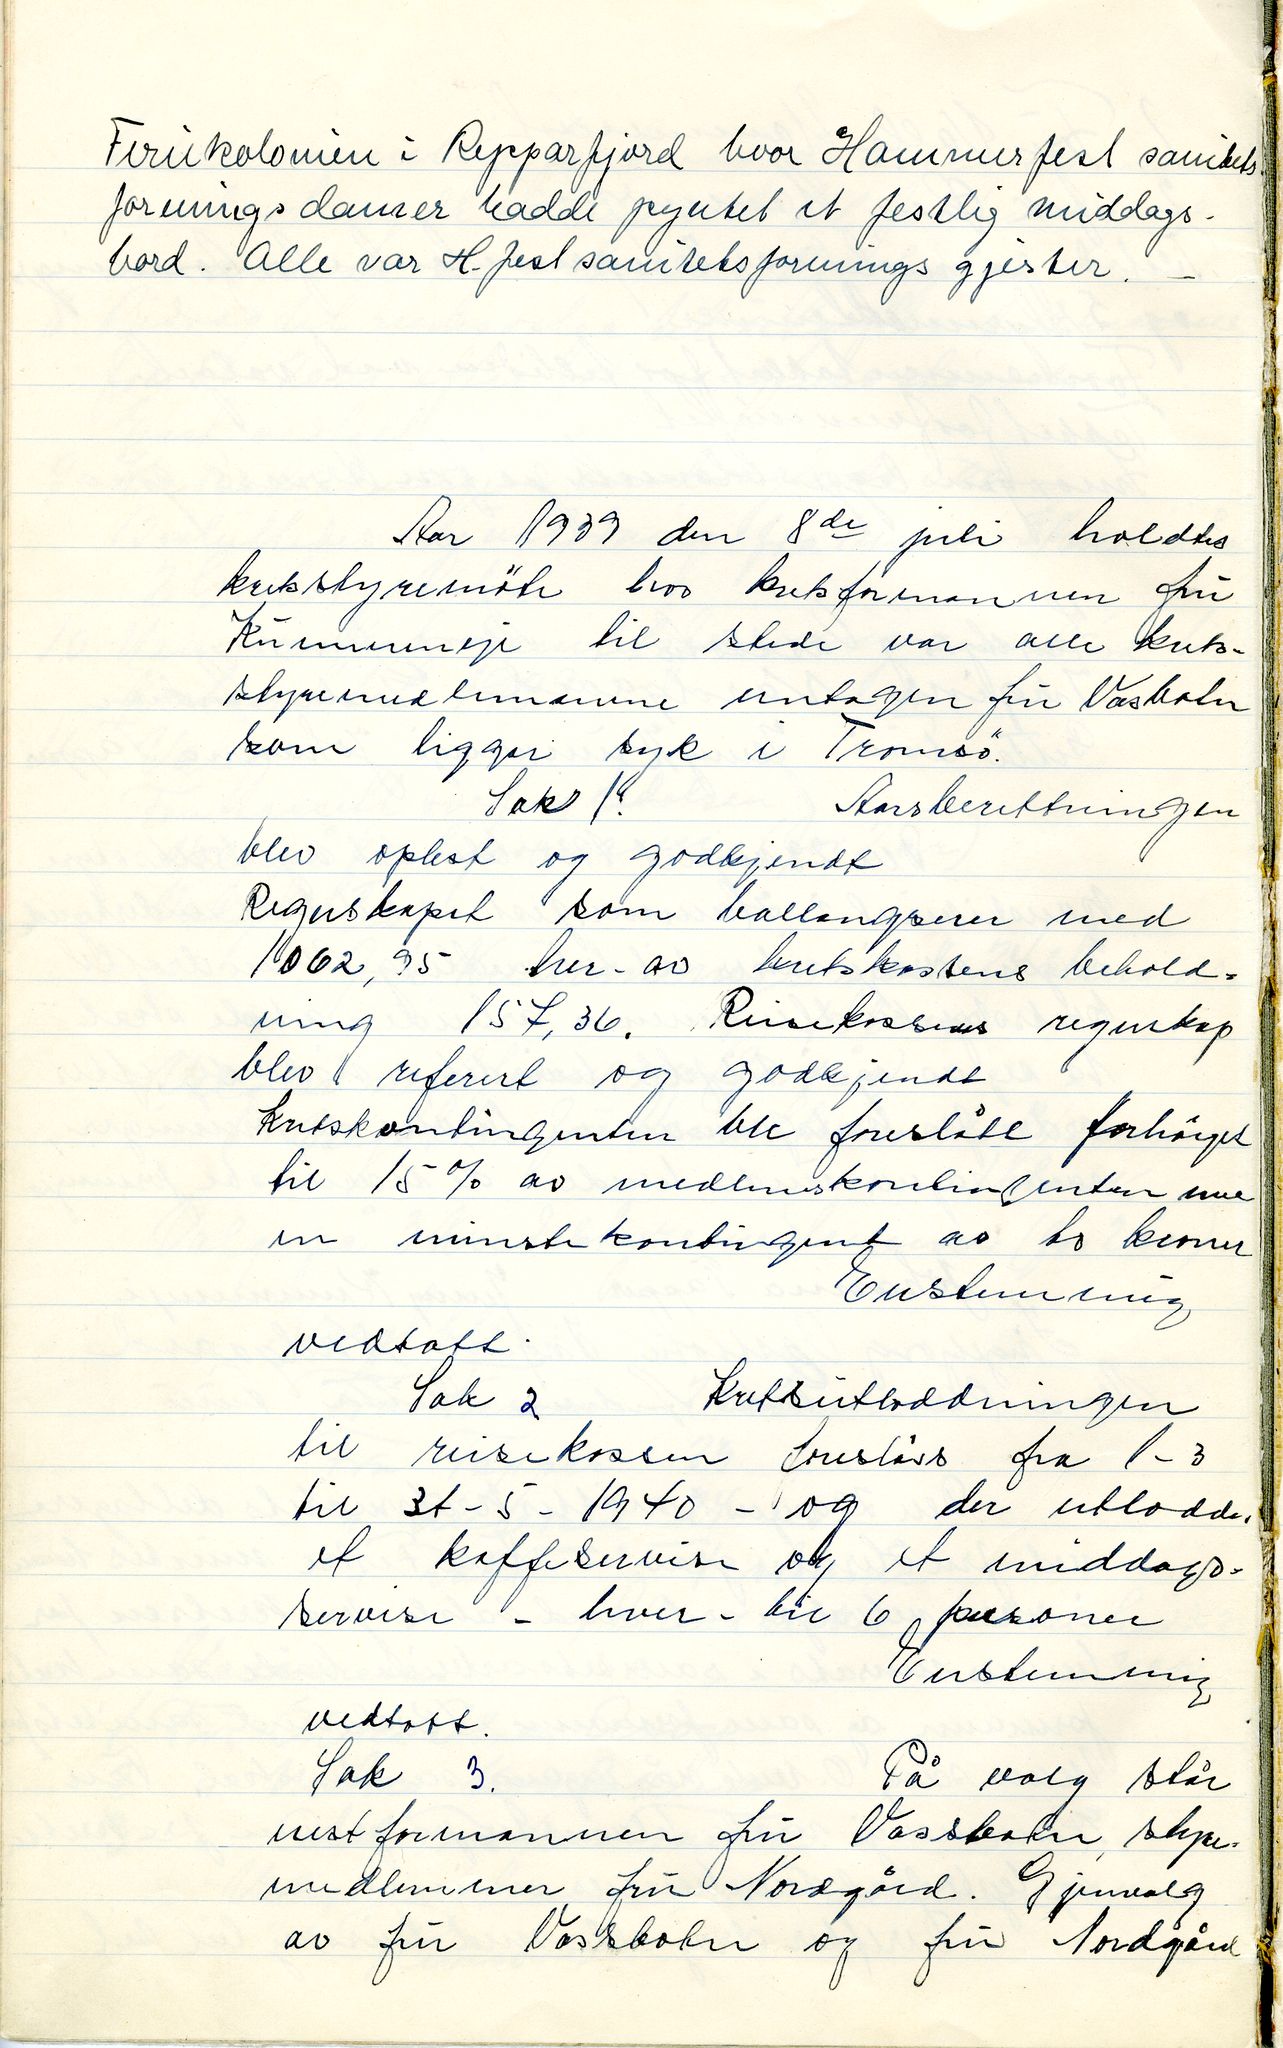 Feriekolonien i Repparfjord hvor Hammerfest sanitets-
forenings damer hadde pyntet et festlig middags-
bord. Alle var H.fest sanitetsforenings gjester. —
Aar 1939 den 8de juli holdtes
kretsstyremöte hos kretsformannen frü
Kummeneje til stede var alle krets-
styremedlemmerne untagen frü Vasbotn
som ligger syk i Tromsö.
Sak 1. Aarsberettningen
blev oplest og godkjendt
Regnskapet som ballangserer med
1062,95 her-av kretskassens behold-
ning 157,36. Reisekassens regnskap
blev referert og godkjendt
Kretskontingenten ble foreslått forhöiget
til 15% av medlemskontingenten med
en minstekontingent av to kroner
Enstemmig
vedtatt.
Sak 2 Kretsutloddningen
til reisekassen foreslåss fra 1-3
til 31-5-1940 - og der utlodde.
et kaffeservise og et middags-
servise - hver - til 6 personer
Enstemmig
vedtatt.
Sak 3. På valg står
nestformannen frü Vassbotn, styre-
medlemmer frü Nordgård. Gjenvalg
av frü Vassbotn og frü Nordgård